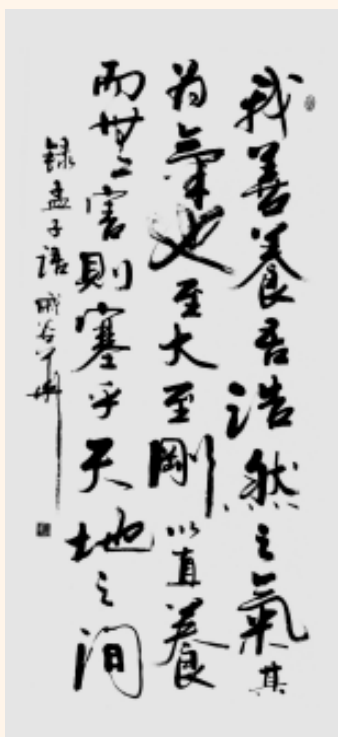 我善養吾浩然之氣其
為氣也至大至剛以直養
而無害則塞乎天地之间
録孟子語